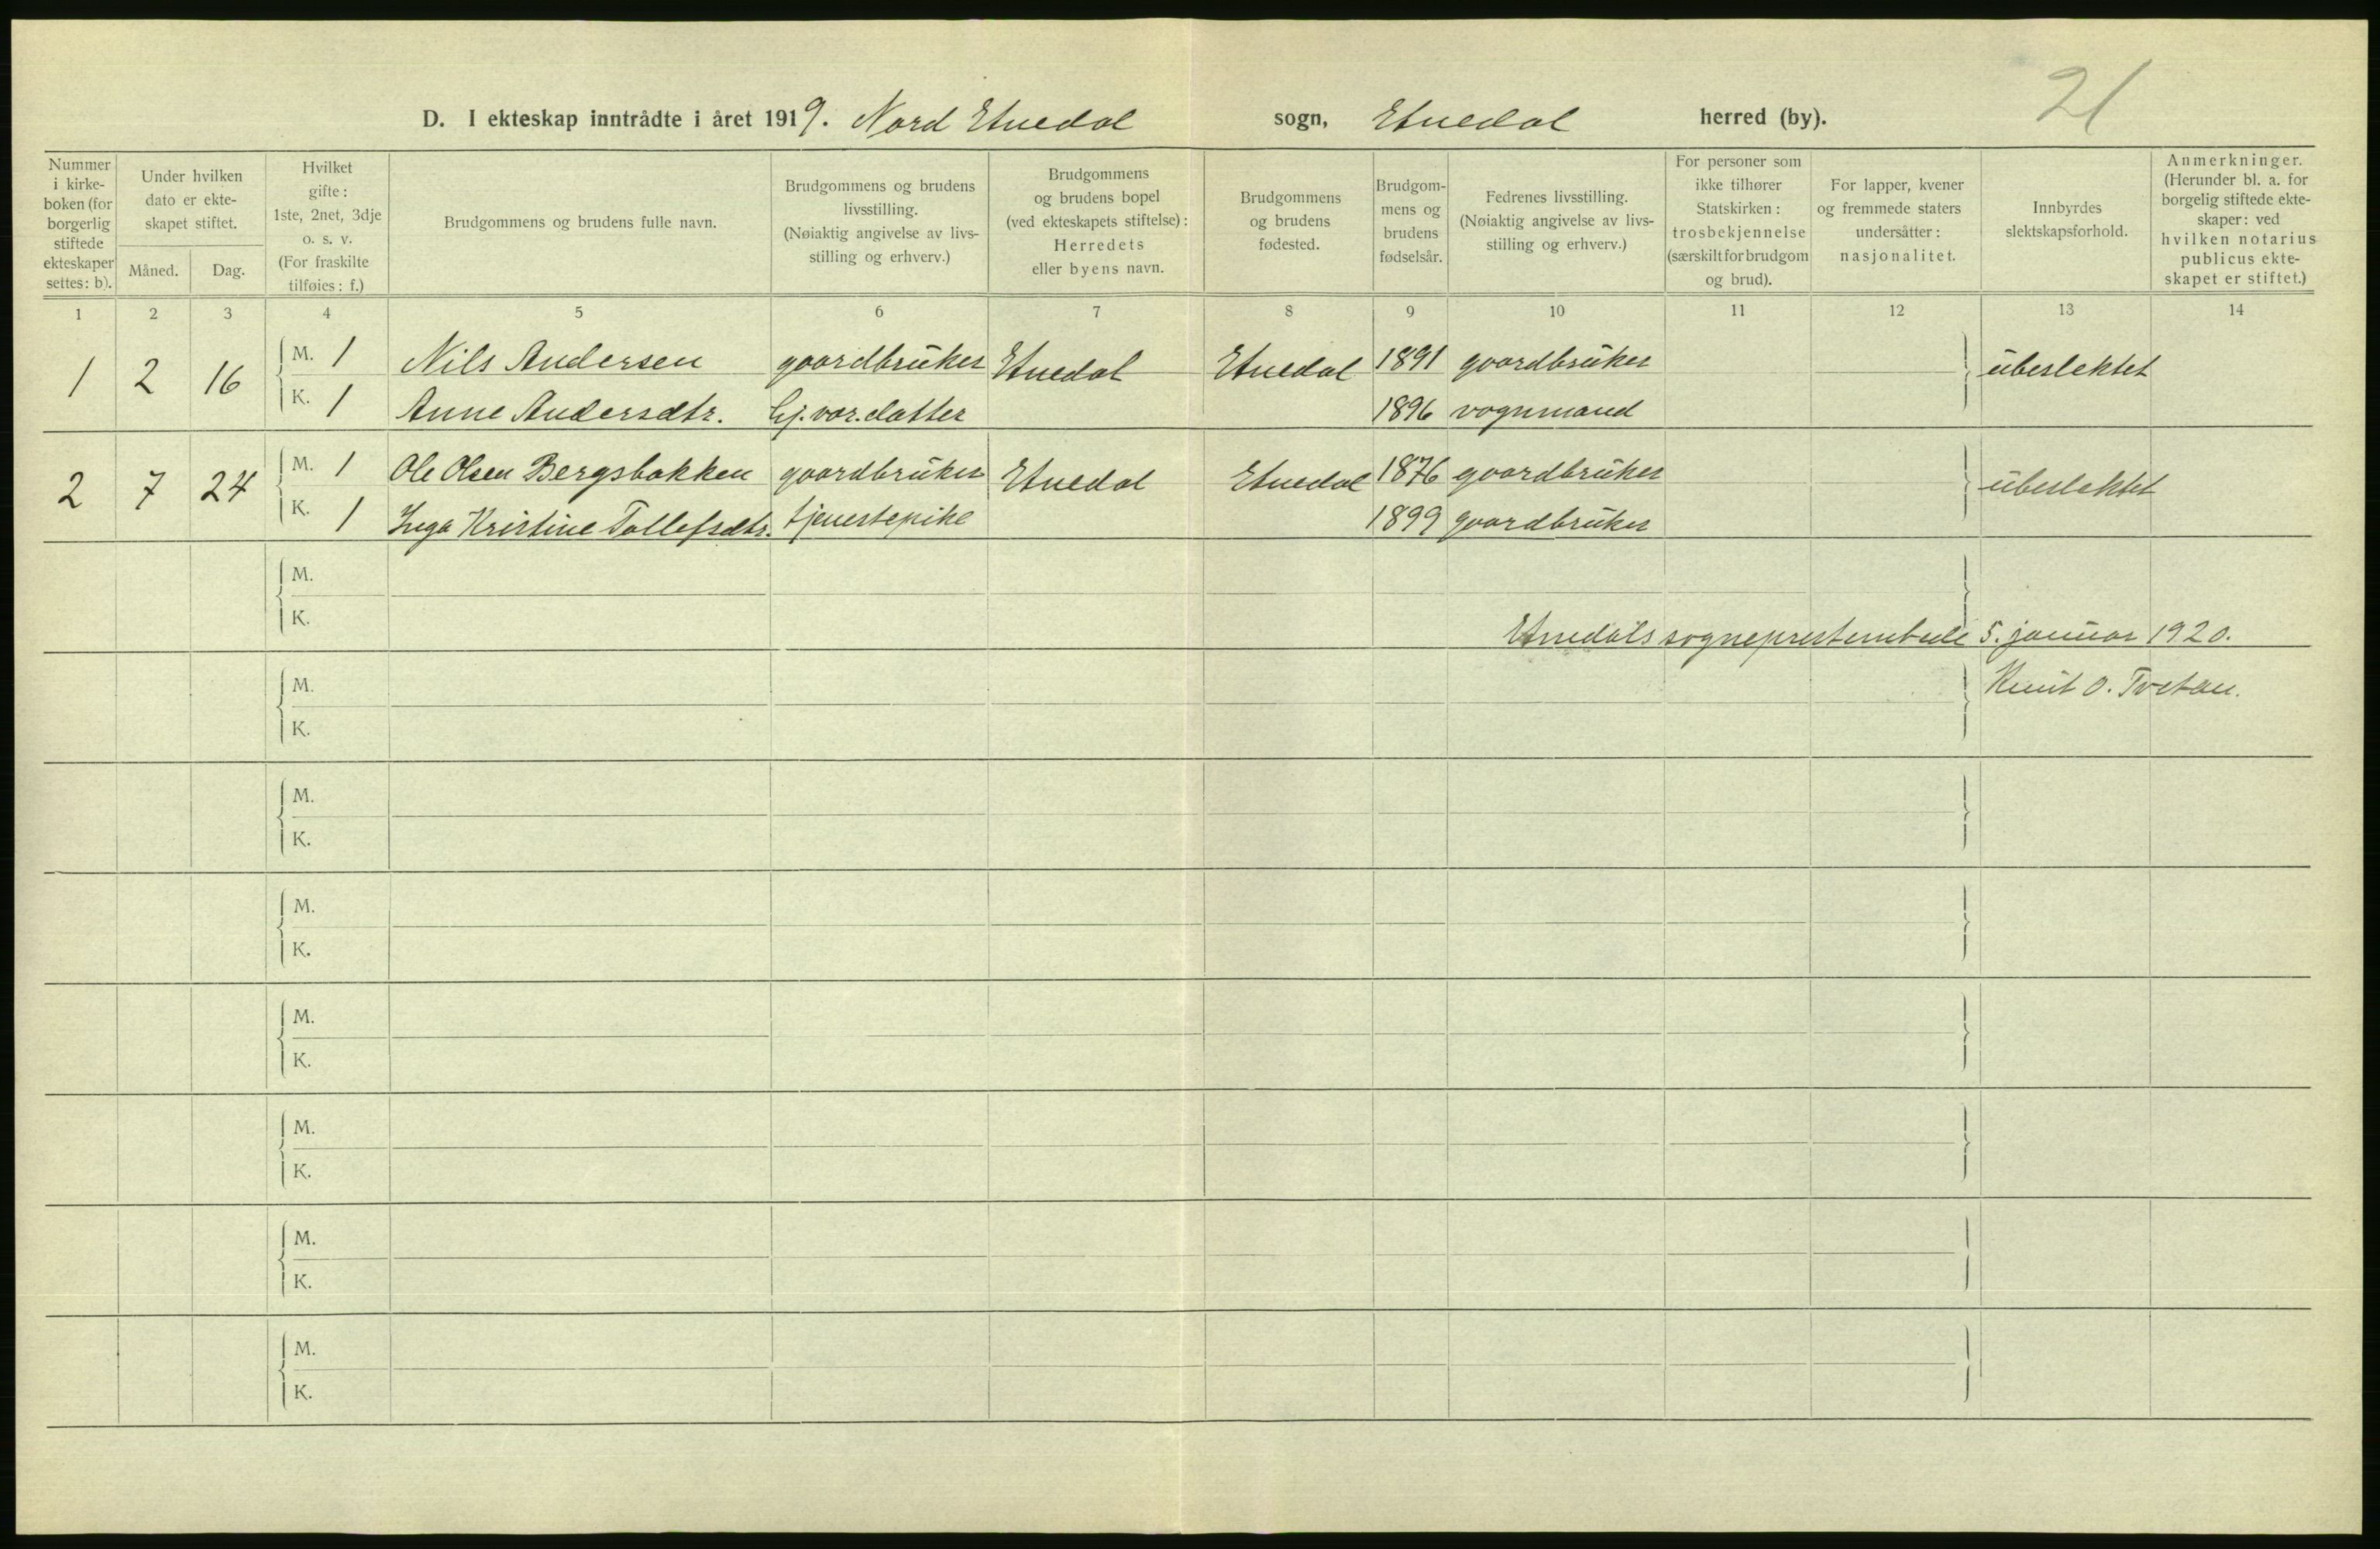 21
D. I ekteskap inntrådte i året 1919. Nord Etnedal sogn, Etnedal herred (by).
Nummer i kirke-boken (for borgerlig stiftede ekteskaper settes: b).
Under hvilken dato er ekte-skapet stiftet.
Måned. Dag.
Hvilket gifte: 1ste, 2net, 3dje o. s. v. (For fraskilte tilføies: f.)
Brudgommens og brudens fulle navn.
Brudgommens og brudens livsstilling. (Nøiaktig angivelse av livs-stilling og erhverv.)
Brudgommens og brudens bopel (ved ekteskapets stiftelse): Herredets eller byens navn.
Brudgommens og brudens fødested.
Brudgom-mens og brudens fødselsår.
Fedrenes livsstilling. (Nøiaktig angivelse av livs-stilling og erhverv.)
For personer som ikke tilhører Statskirken: trosbekjennelse (særskilt for brudgom og brud).
For lapper, kvener og fremmede staters undersåtter: nasjonalitet.
Innbyrdes slektskapsforhold.
Anmerkninger. (Herunder bl. a. for borgelig stiftede ekte-skaper: ved hvilken notarius publicus ekte-skapet er stiftet.)
1 2 3 4 5 6 7 8 9 10 11 12 13 14
1 2 16 M. 1 Nils Andersen gaardbruker Etnedal Etnedal 1891 gaardbruker ubeslektet
K. 1 Anne Andersdtr. hj.vær.datter 1896 vognmand
2 7 24 M. 1 Ole Olsen Bergsbakken gaardbruker Etnedal Etnedal 1876 gaardbruker ubeslektet
K. 1 Inga Kristine Tollefsdtr. tjenestepike 1899 gaardbruker
M.
K.
Etnedals sogneprestembede 5. januar 1920.
M.
Knut O. Tvetan.
K.
M.
K.
M.
K.
M.
K.
M.
K.
M.
K.
M.
K.